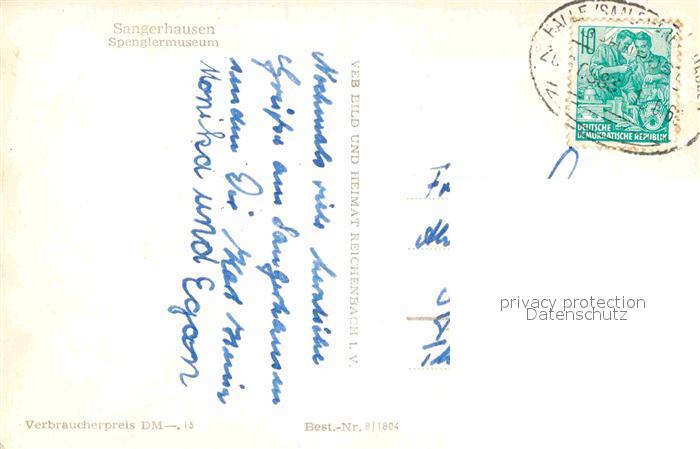 Sangerhausen
Spenglermuseum
Nochmals viele herzliche
Grüße aus Sangerhausen
senden Dir Karl Heinz
Monika und Egon
VEB BILD UND HEIMAT REICHENBACH I. V.
HALLE (SAALE)
10
DEUTSCHE
DEMOKRATISCHE REPUBLIK
privacy protection
Datenschutz
Verbraucherpreis DM—. 15
Best.-Nr. 8/1804